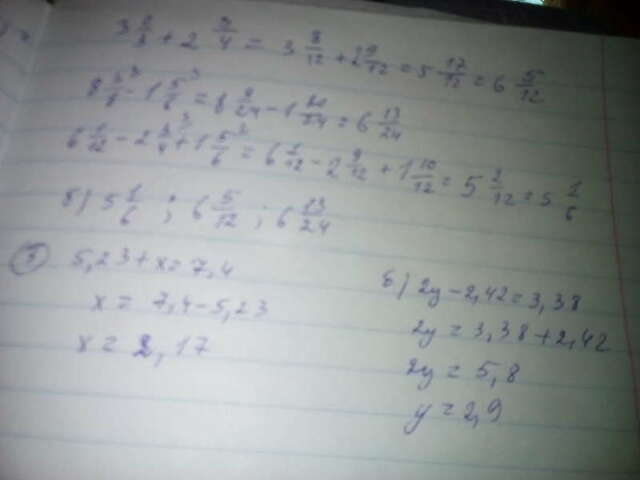 3 2/3 + 2 3/4 = 3 8/12 + 2 9/12 = 5 17/12 = 6 5/12
8 3/8 - 1 5/6 = 8 9/24 - 1 20/24 = 6 13/24
6 1/12 - 2 3/4 + 1 5/6 = 6 1/12 - 2 9/12 + 1 10/12 = 5 2/12 = 5 1/6
б) 5 1/6 ; 6 5/12 ; 6 13/24
5,23 + x = 7,4
x = 7,4 - 5,23
x = 2,17
б) 2y - 2,42 = 3,38
2y = 3,38 + 2,42
2y = 5,8
y = 2,9